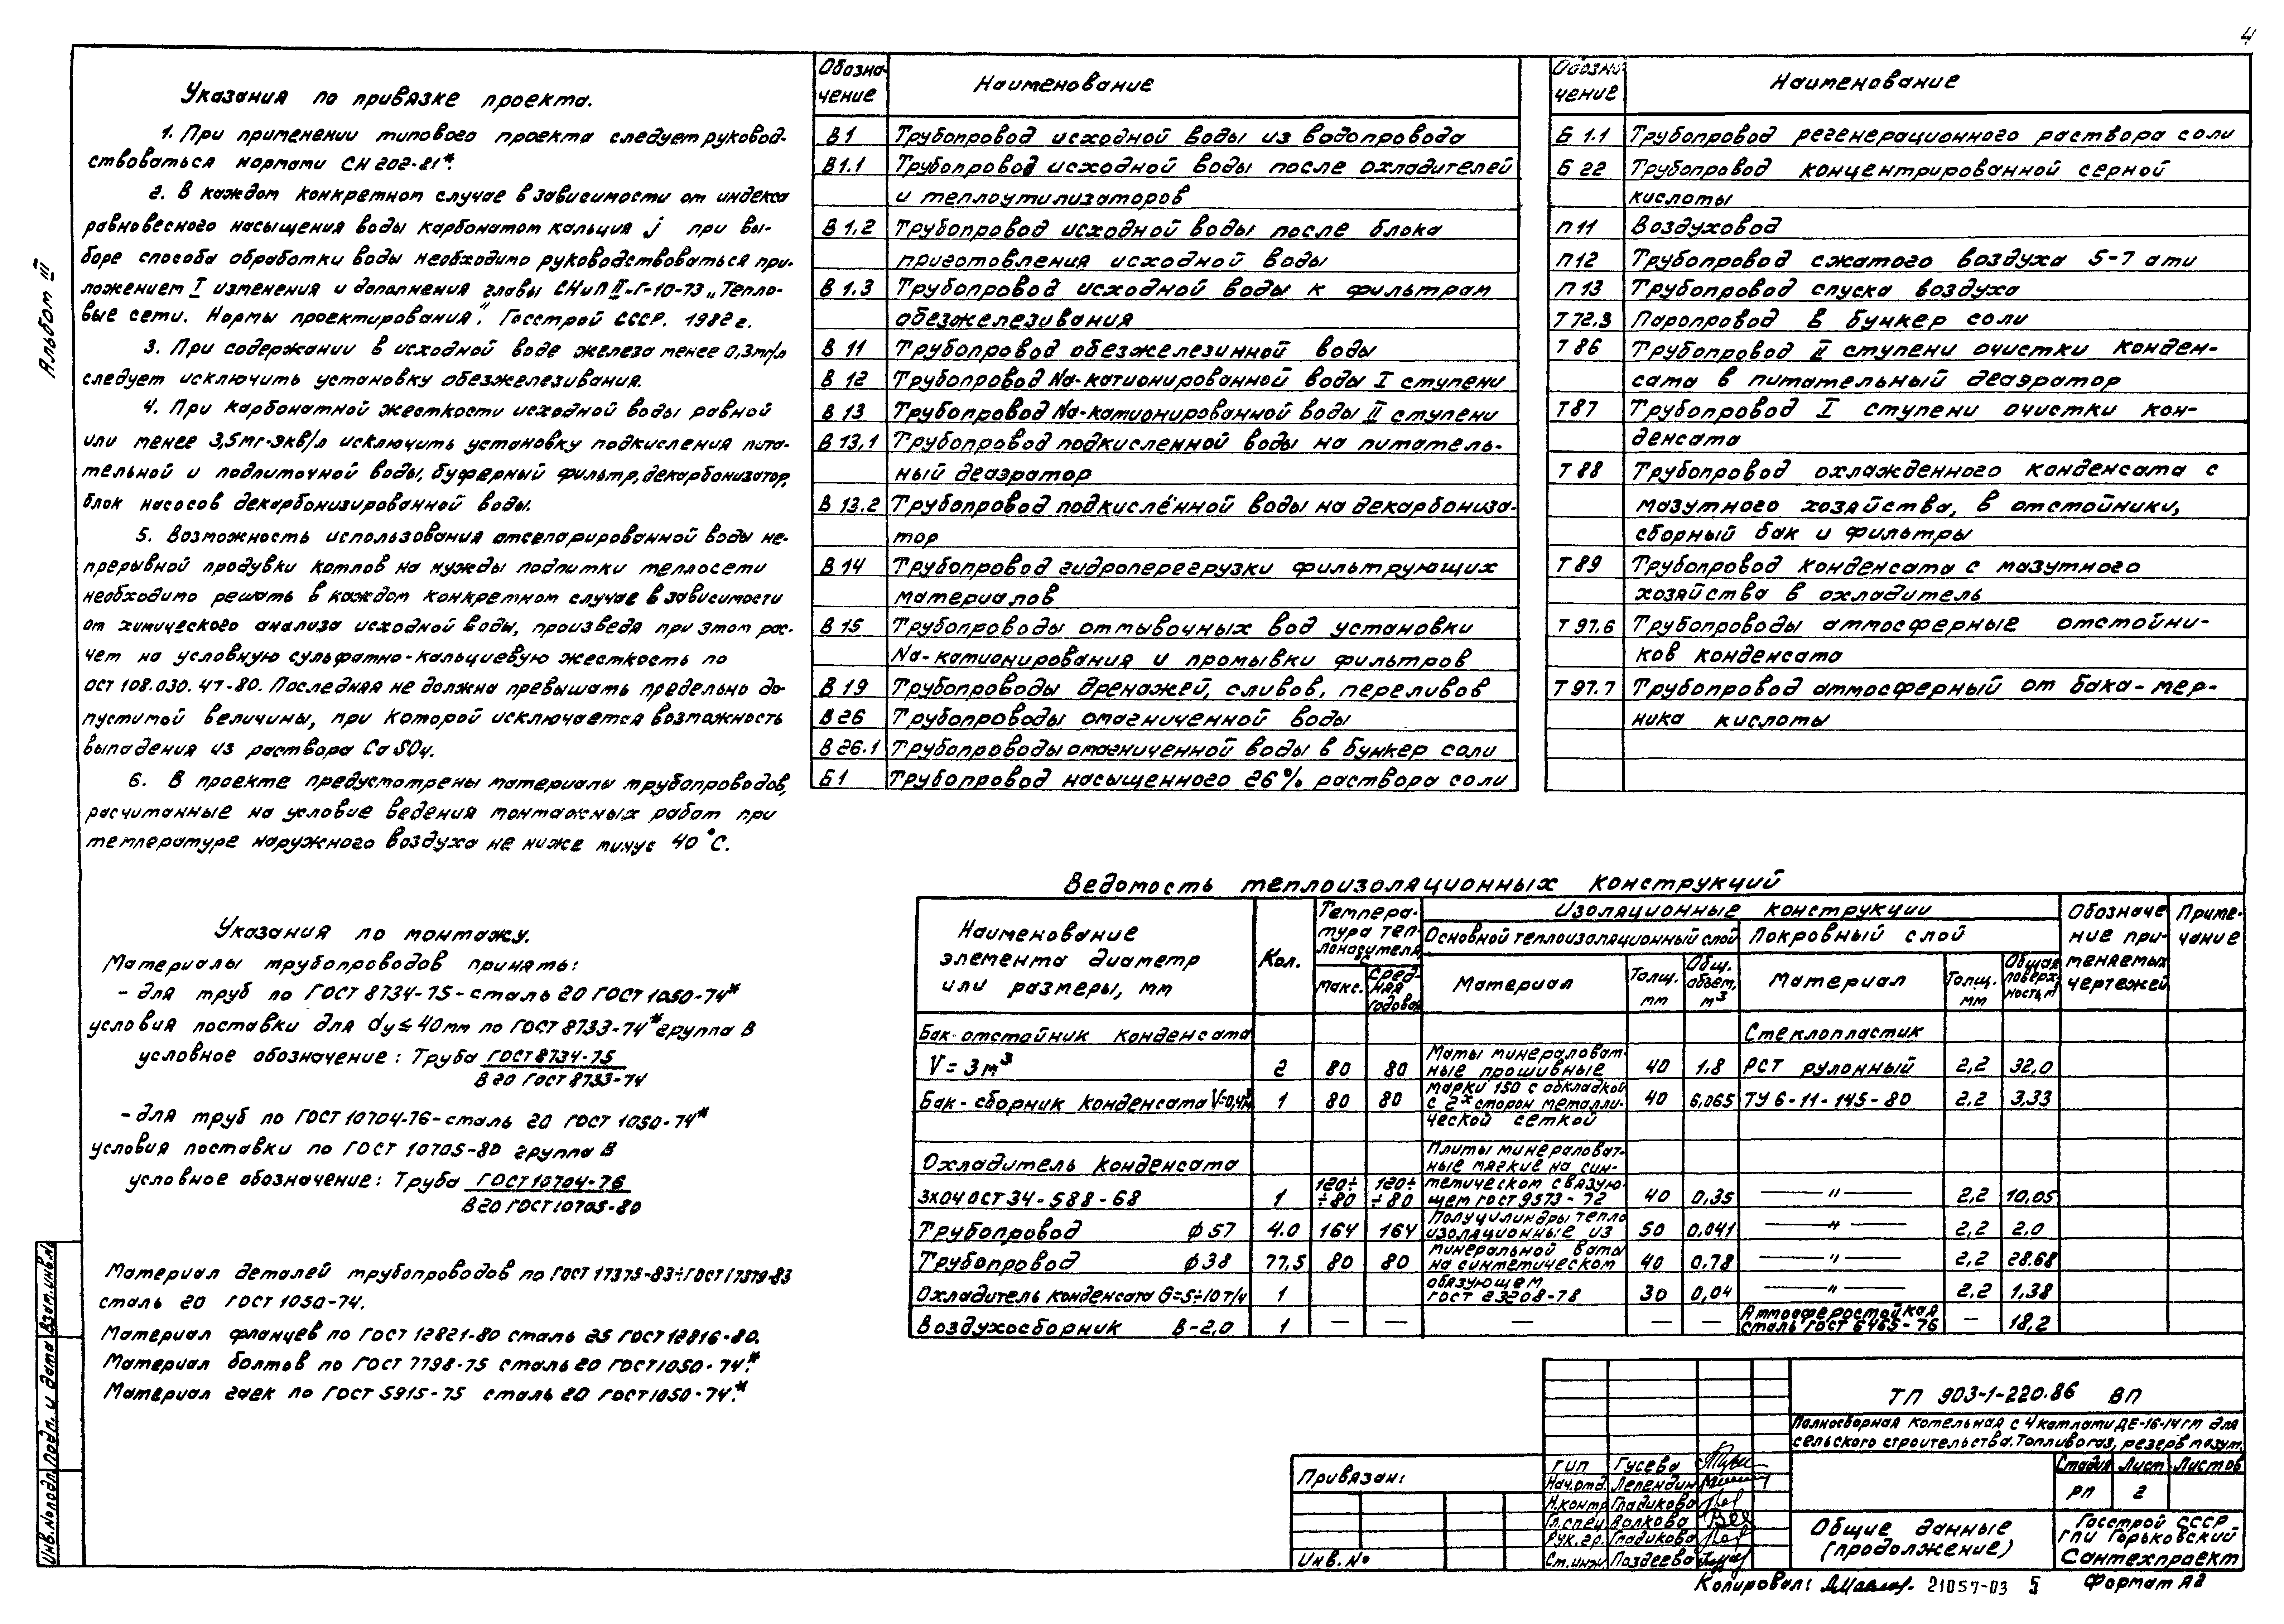 4
Альбом III
Указания по привязке проекта.
1. При применении типового проекта следует руковод-
ствоваться нормами СН 202-81*.
2. В каждом конкретном случае в зависимости от индекса
равновесного насыщения воды карбонатом кальция j при вы-
боре способа обработки воды необходимо руководствоваться при-
ложением I изменения и дополнения главы СНиП II-Г-10-73 „Тепло-
вые сети. Нормы проектирования". Госстрой СССР. 1982 г.
3. При содержании в исходной воде железа менее 0,3мг/л
следует исключить установку обезжелезивания.
4. При карбонатной жесткости исходной воды равной
или менее 3,5мг-экв/л исключить установку подкисления пита-
тельной и подпиточной воды, буферный фильтр, декарбонизатор,
блок насосов декарбонизированной воды.
5. Возможность использования отсепарированной воды не-
прерывной продувки котлов на нужды подпитки теплосети
необходимо решать в каждом конкретном случае в зависимости
от химического анализа исходной воды, произведя при этом рас-
чет на условную сульфатно-кальциевую жесткость по
ОСТ 108.030.47-80. Последняя не должна превышать предельно до-
пустимой величины, при которой исключается возможность
выпадения из раствора CaSO4.
6. В проекте предусмотрены материалы трубопроводов,
расчитанные на условие ведения монтажных работ при
температуре наружного воздуха не ниже минус 40°С.
Указания по монтажу.
Материалы трубопроводов принять:
- для труб по ГОСТ 8734-75-сталь 20 ГОСТ 1050-74*
условия поставки для dy ≤ 40мм по ГОСТ 8733-74* группа В
условное обозначение: Труба ГОСТ 8734-75
В 20 ГОСТ 8733-74
- для труб по ГОСТ 10704-76-сталь 20 ГОСТ 1050-74*
условия поставки по ГОСТ 10705-80 группа В
условное обозначение: Труба ГОСТ 10704-76
В 20 ГОСТ 10705-80
Материал деталей трубопроводов по ГОСТ 17375-83÷ГОСТ 17379-83
сталь 20 ГОСТ 1050-74.
Материал фланцев по ГОСТ 12821-80 сталь 25 ГОСТ 12816-80.
Материал болтов по ГОСТ 7798-75 сталь 20 ГОСТ 1050-74.*
Материал гаек по ГОСТ 5915-75 сталь 20 ГОСТ 1050-74.*
Обозна-
чение Наименование
В1 Трубопровод исходной воды из водопровода
В1.1 Трубопровод исходной воды после охладителей
и теплоутилизаторов
В 1.2 Трубопровод исходной воды после блока
приготовления исходной воды
В 1.3 Трубопровод исходной воды к фильтрам
обезжелезивания
В 11 Трубопровод обезжелезинной воды
В 12 Трубопровод Na-катионированной воды I ступени
В 13 Трубопровод Na-катионированной воды II ступени
В 13.1 Трубопровод подкисленной воды на питатель-
ный деаэратор
В 13.2 Трубопровод подкислённой воды на декарбониза-
тор
В 14 Трубопровод гидроперегрузки фильтрующих
материалов
В 15 Трубопроводы отмывочных вод установки
Na-катионирования и промывки фильтров
В 19 Трубопроводы дренажей, сливов, переливов
В 26 Трубопроводы омагниченной воды
В 26.1 Трубопроводы омагниченной воды в бункер соли
Б1 Трубопровод насыщенного 26% раствора соли
Обозна-
чение Наименование
Б 1.1 Трубопровод регенерационного раствора соли
Б 22 Трубопровод концентрированной серной
кислоты
П 11 Воздуховод
П12 Трубопровод сжатого воздуха 5-7 ати
П 13 Трубопровод спуска воздуха
Т 72.3 Паропровод в бункер соли
Т 86 Трубопровод II ступени очистки конден-
сата в питательный деаэратор
Т87 Трубопровод I ступени очистки кон-
денсата
Т 88 Трубопровод охлажденного конденсата с
мазутного хозяйства, в отстойники,
сборный бак и фильтры
Т 89 Трубопровод конденсата с мазутного
хозяйства в охладитель
Т 97.6 Трубопроводы атмосферные отстойни-
ков конденсата
Т 97.7 Трубопровод атмосферный от бака-мер-
ника кислоты
Ведомость теплоизоляционных конструкций
Наименование
элемента диаметр
или размеры, мм
Кол.
Темпера-
тура теп-
лоносителя,
макс.
Сред-
няя
годовая
Изоляционные конструкции
Основной теплоизоляционный слой Покровный слой
Материал Толщ. мм Общ. объем, м³ Материал Толщ. мм Общая поверх-ность, м²
Обозначе
ние при-
меняемых
чертежей
Приме-
чание
Бак-отстойник конденсата Стеклопластик
V = 3м³ 2 80 80 Маты минераловат-
ные прошивные 40 1.8 РСТ рулонный 2,2 32,0
Бак-сборник конденсата V=0,4м³ 1 80 80 марки 150 с обкладкой
с 2х сторон металли-
ческой сеткой 40 6,065 ТУ 6-11-145-80 2.2 3.33
Охладитель конденсата Плиты минераловат-
ные мягкие на син-
3х04 ОСТ 34-588-68 1 120÷
÷80 120÷
÷80 тетическом связую-
щем ГОСТ 9573-72 40 0,35 —〃— 2,2 10,05
Трубопровод ф57 4.0 164 164 Полуцилиндры тепло
изоляционные из 50 0,041 —〃— 2,2 2.0
Трубопровод ф38 77,5 80 80 минеральной ваты
на синтетическом 40 0.78 —〃— 2,2 28.68
Охладитель конденсата G=5÷10т/ч 1 связующем
ГОСТ 23208-78 30 0,04 —〃— 2,2 1,38
Воздухосборник В-2,0 1 — — — — — Атмосферостойкая
сталь ГОСТ 6465-76 — 18,2
ТП 903-1-220.86 ВП
Полносборная котельная с 4 котлами ДЕ-16-14гм для
сельского строительства. Топливо газ, резерв мазут.
Стадия Лист Листов
РП 2
Общие данные
(продолжение)
Госстрой СССР
ГПИ Горьковский
Сантехпроект
Привязан:
Инв. №
ГИП Гусева
Нач.отд. Лепендин
Н.контр Гладикова
Гл.спец Волкова
Рук.гр. Гладикова
Ст.инж Поздеева
Инв.№подл. Подп. и дата Взам.инв.№
Копировал: 21057-03 5 Формат А2